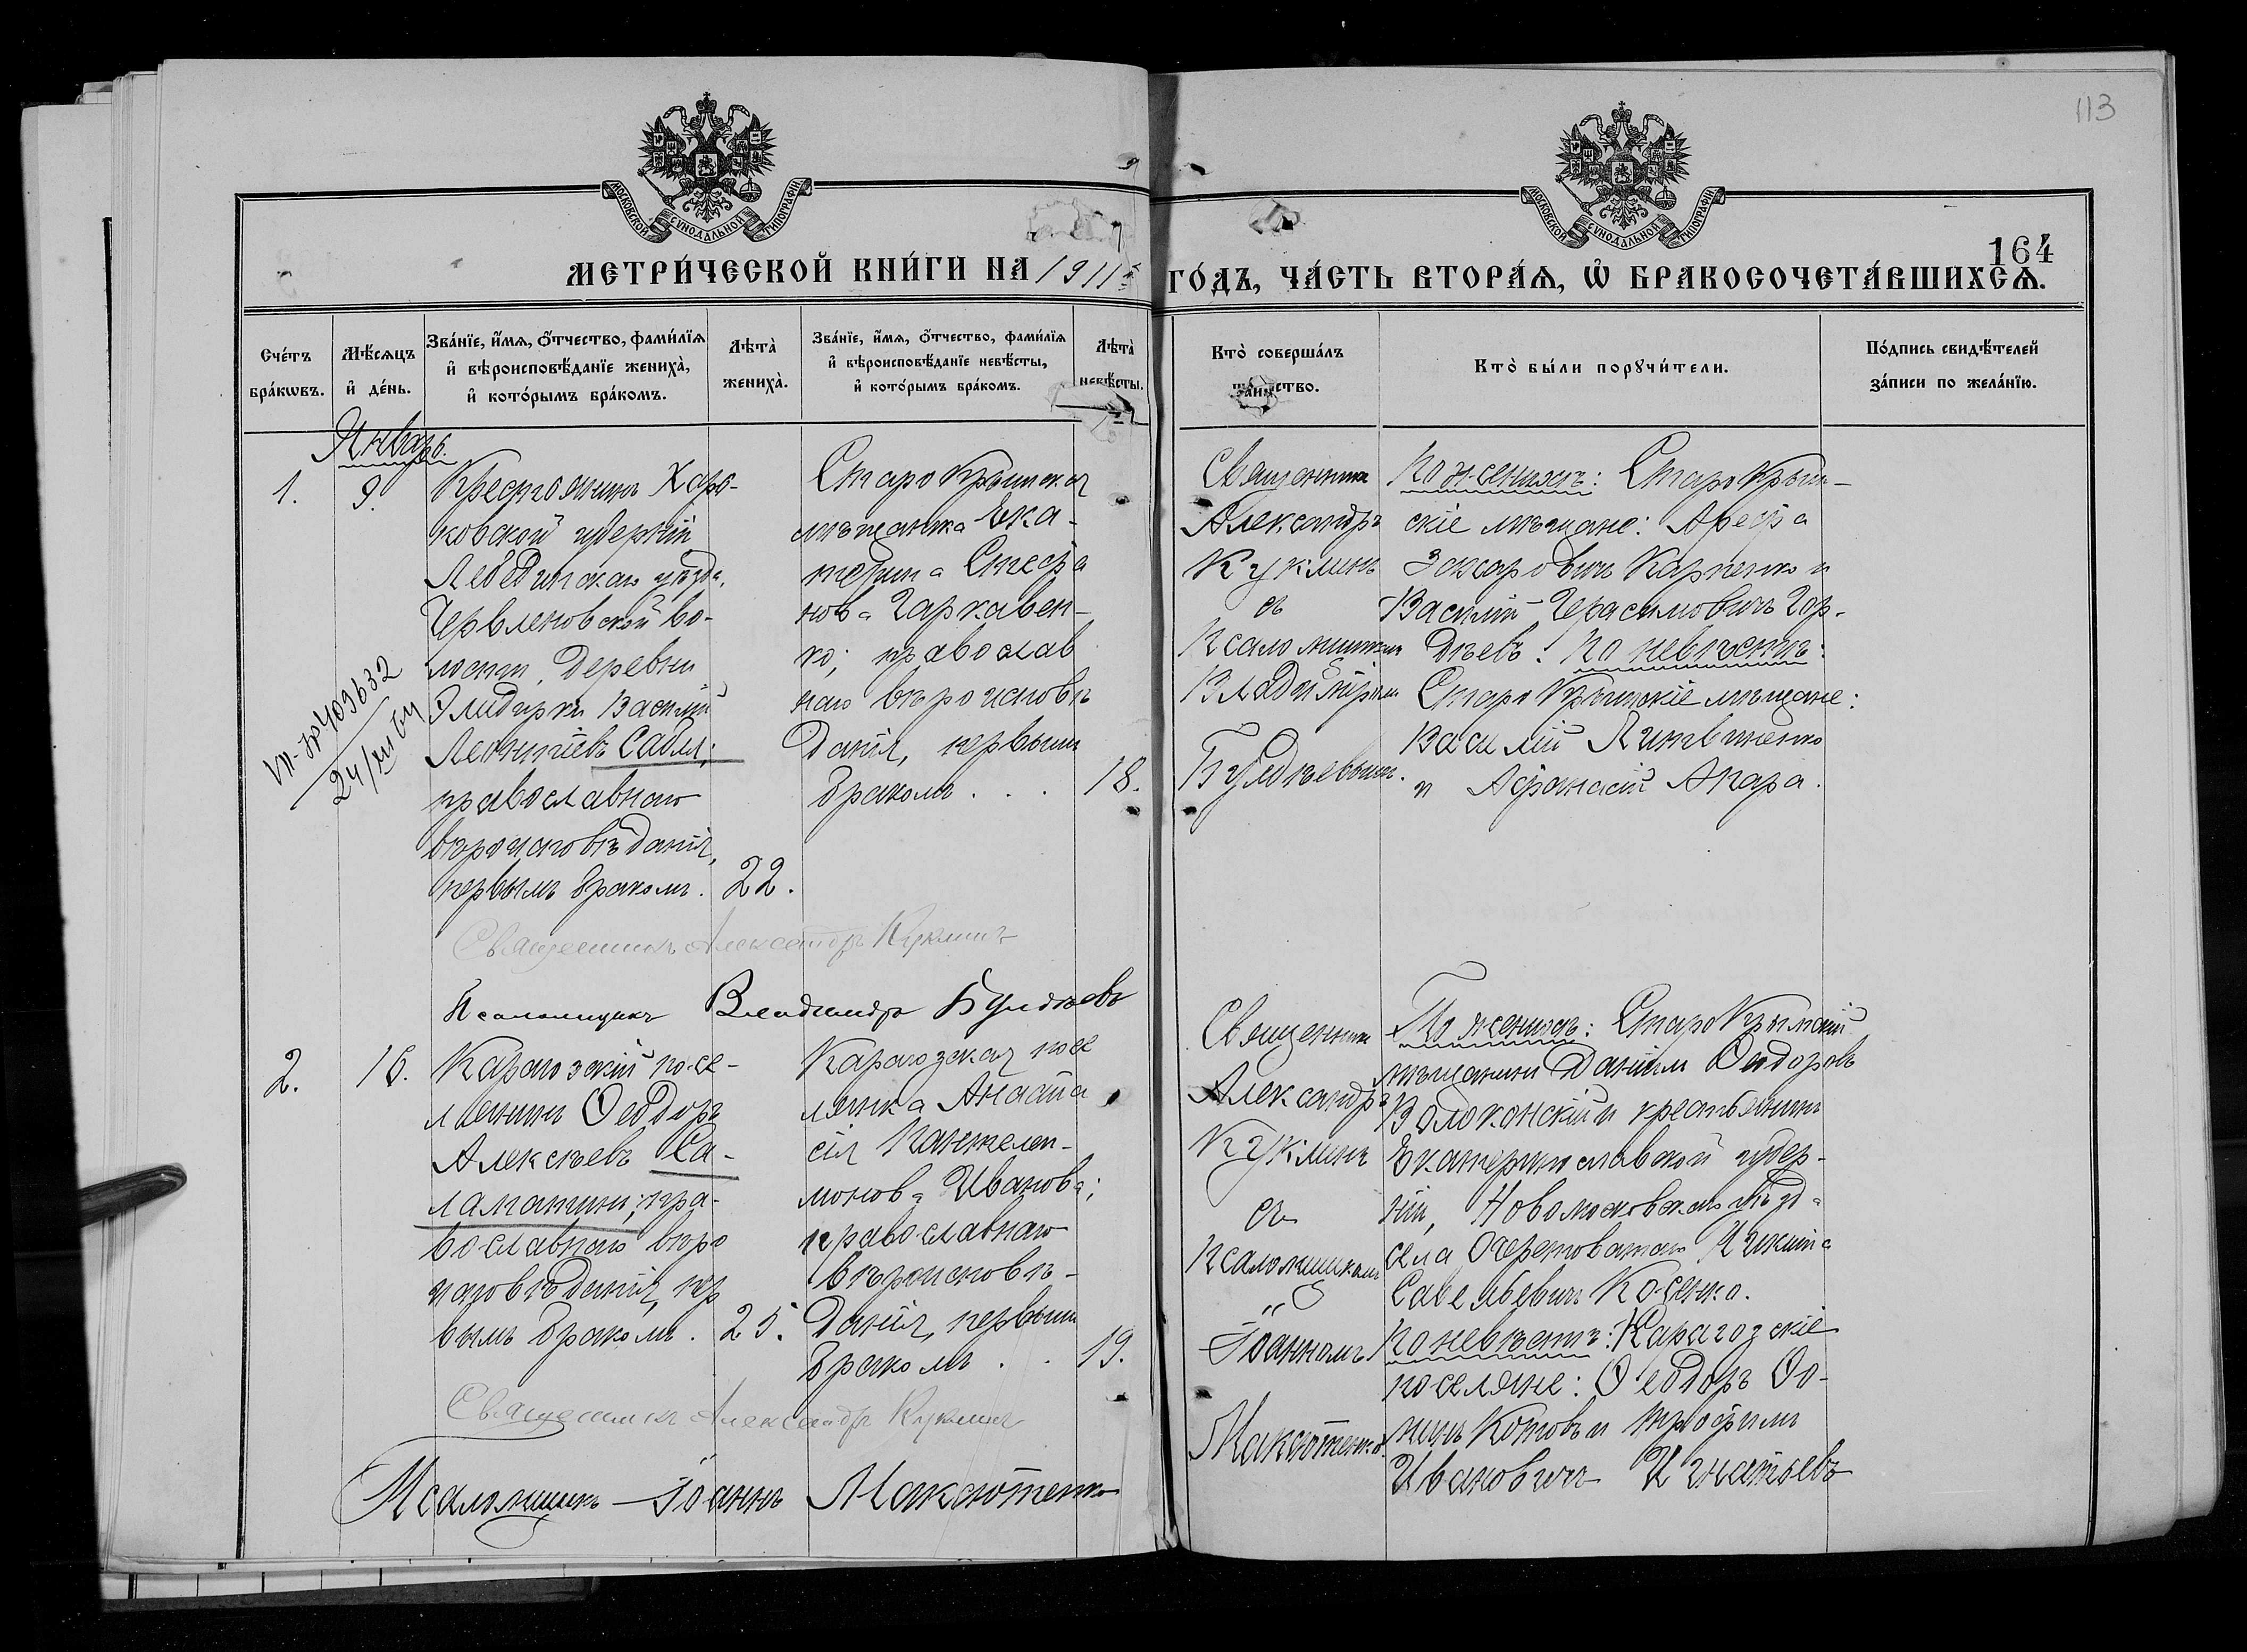 113
164
МОСКОВСКОЙ СѴНОДАЛЬНОЙ ТИПОГРАФІИ
МОСКОВСКОЙ СѴНОДАЛЬНОЙ ТИПОГРАФІИ
МЕТРИ́ЧЕСКОЙ КНИ́ГИ НА 1911й
ГО́ДЪ, ЧА́СТЬ ВТОРА́Я, Ѡ БРАКОСОЧЕТА́ВШИХСЯ.
Сче́тъ
бра́кѡвъ.
Мѣ́сяцъ
и҆ де́нь.
Зва́нїе, и҆́мѧ, ѻ҆́тчество, фами́лїѧ
и҆ вѣроисповѣ́данїе жениха̀,
и҆ кото́рымъ бра́комъ.
Лѣта̀
жениха̀.
Зва́нїе, и҆́мѧ, ѻ҆́тчество, фами́лїѧ
и҆ вѣроисповѣ́данїе невѣ́сты,
и҆ кото́рымъ бра́комъ.
Лѣта̀
невѣ́сты.
Кто̀ соверша́лъ
та́инство.
Кто̀ бы́ли порꙋчи́тели.
По́дпись свидѣ́телей
за́писи по жела́нїю.
Январь.
1.
9.
Крестьянинъ Харь-
ковской губерніи
Лебединскаго уѣзда,
Червленовской во-
лости, деревни
Василий
Леонтіевъ
православнаго
вѣроисповѣданія,
первымъ бракомъ.
22.
Старо Крымская
мѣщанка Ека-
терина Стефа
нова Гаркавен-
ко; православ
наго вѣроисповѣ
данія, первымъ
бракомъ . . .
18.
Священникъ
Александръ
Куклинъ
съ
Псаломщикомъ
Владиміромъ
Булдѣевымъ.
По женихѣ: Старо Крым-
скіе мѣщане: Арефа
Захаровичъ Карпенко и
Василій Герасимовичъ Гор-
дѣевъ. По невѣстѣ:
Старо Крымскіе мѣщане:
Василій Литвиненко
и Афанасій Апара.
24/
Священникъ Александръ Куклинъ
Псаломщикъ Владиміръ Булдѣевъ
2.
16.
Карагозскій посе-
лянинъ Ѳеодоръ
Алексѣевъ Са-
ламатинъ; пра-
вославнаго вѣро
исповѣданія, пер
вымъ бракомъ.
25.
Карагозская посе
лянка Анаста
сія Пантелей-
монова Иванова;
православнаго
вѣроисповѣ-
данія, первымъ
бракомъ . .
19.
Священникъ
Александръ
Куклинъ
съ
Псаломщикомъ
Іоанномъ
Максютенко.
По женихѣ: Старо Крымскій
мѣщанинъ Даніилъ Ѳеодоровъ
Волоконскій и крестьянинъ
Екатеринославской губер-
ніи, Новомосковскаго уѣзда
села Очеретоватаго Никита
Савельевичъ Косенко.
По невѣстѣ: Карагозскіе
поселяне: Ѳеодоръ Ѳо-
мичъ Котовъ и Трофимъ
Ивановичъ Игнатьевъ
Священникъ Александръ Куклинъ
Псаломщикъ Іоаннъ Максютенко